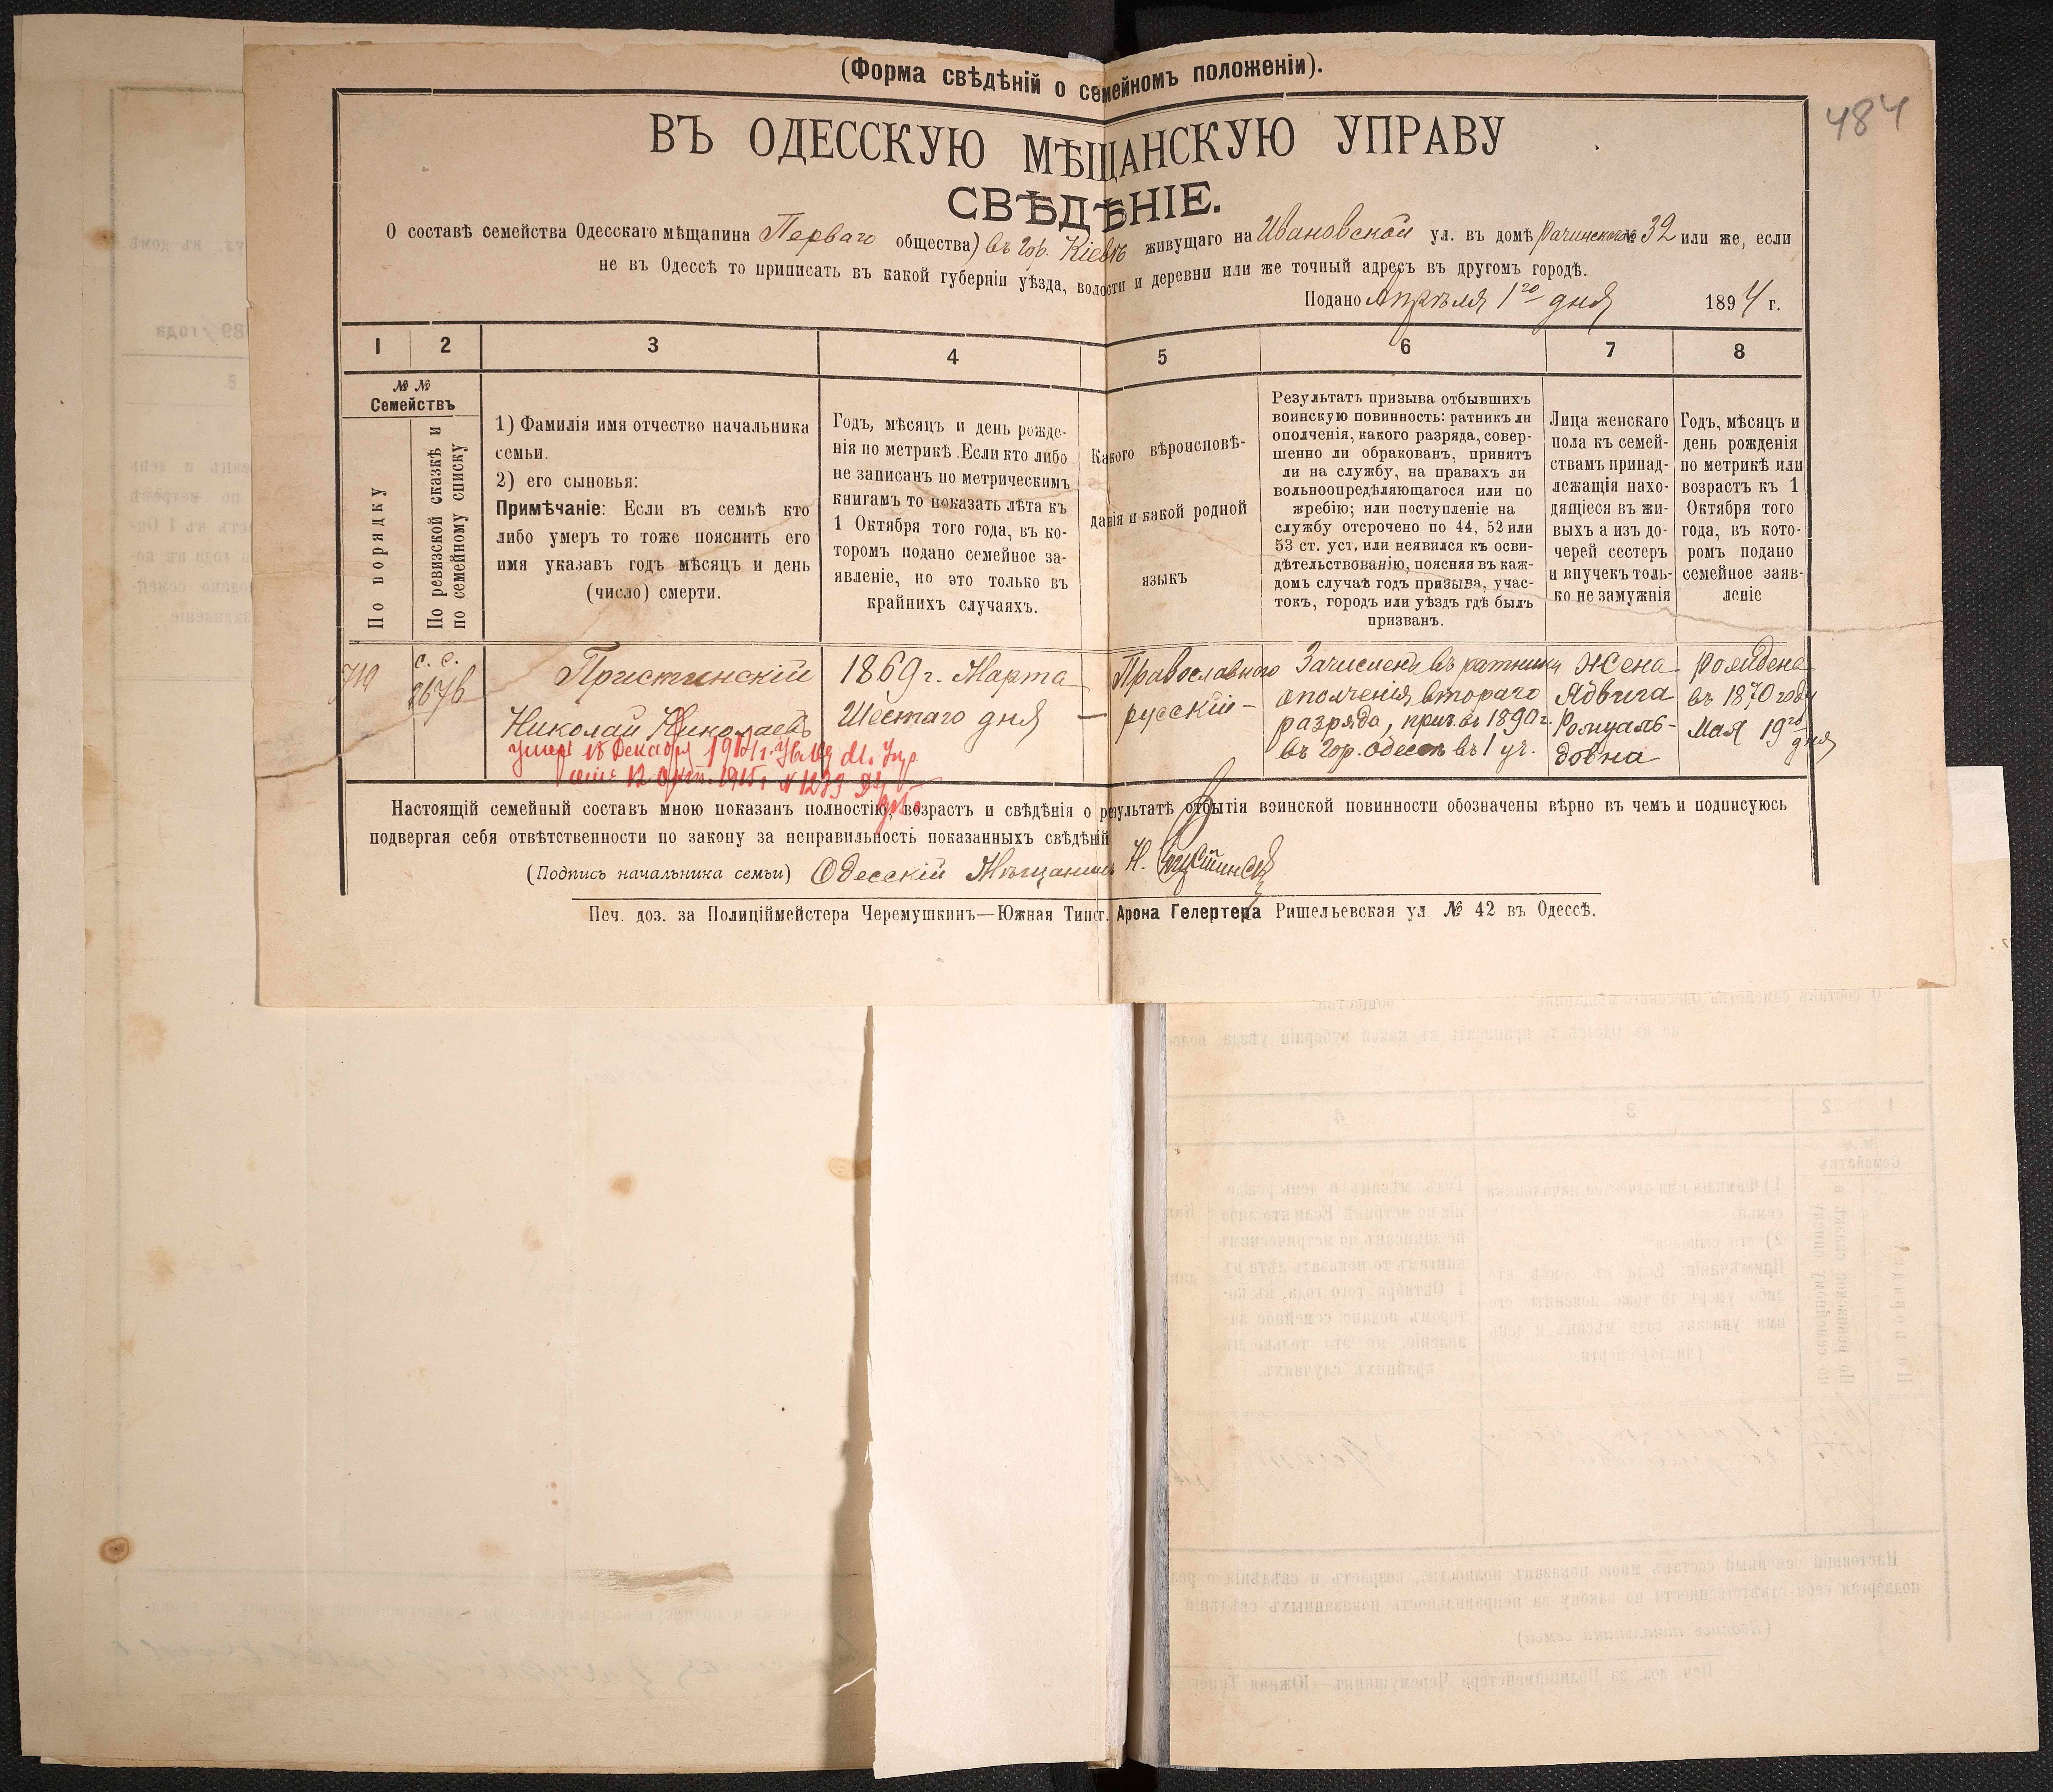 484
(Форма свѣдѣній о семейномъ положеніи).
ВЪ ОДЕССКУЮ МѢЩАНСКУЮ УПРАВУ
СВѢДѢНІЕ.
О составѣ семейства Одесскаго мѣщанина Перваго общества) въ гор. Кіевѣ живущаго на Ивановской ул. въ домѣ Рачинскаго № 32 или же, если
не въ Одессѣ то приписать въ какой губерніи уѣзда, волости и деревни или же точный адресъ въ другомъ городѣ.
Подано Апрѣля 1го дня 1894 г.
1 2 3 4 5 6 7 8
№ №
Семействъ
По порядку
По ревизской сказкѣ и
по семейному списку
1) Фамилія имя отчество начальника
семьи.
2) его сыновья:
Примѣчаніе: Если въ семьѣ кто
либо умеръ то тоже пояснить его
имя указавъ годъ мѣсяцъ и день
(число) смерти.
Годъ, мѣсяцъ и день рожде-
нія по метрикѣ. Если кто либо
не записанъ по метрическимъ
книгамъ то показать лѣта къ
1 Октября того года, въ ко-
торомъ подано семейное за-
явленіе, но это только въ
крайнихъ случаяхъ.
Какого вѣроисповѣ-
данія и какой родной
языкъ
Результатъ призыва отбывшихъ
воинскую повинность: ратникъ ли
ополченія, какого разряда, совер-
шенно ли обракованъ, принятъ
ли на службу, на правахъ ли
вольноопредѣляющагося или по
жребію; или поступленіе на
службу отсрочено по 44, 52 или
53 ст. уст. или неявился къ осви-
дѣтельствованію, поясняя въ каж-
домъ случаѣ годъ призыва, учас-
токъ, городъ или уѣздъ гдѣ былъ
призванъ.
Лица женскаго
пола къ семей-
ствамъ принад-
лежащія нахо-
дящіеся въ жи-
выхъ а изъ до-
черей сестеръ
и внучекъ толь-
ко не замужнія
Годъ, мѣсяцъ и
день рожденія
по метрикѣ или
возрастъ къ 1
Октября того
года, въ кото-
ромъ подано
семейное заяв-
леніе
с. с.
Пристинскій
Николай Николаевъ
умеръ 18 Декабря
1869 г. Марта
Шестаго дня —
Православнаго
русскій —
Зачисленъ въ ратники
ополченія втораго
разряда, приз. въ 1890 г.
въ гор. Одессѣ въ 1 уч.
Жена
Ядвига
Ромуаль-
довна
рождена
въ 1870 году
Мая 19го
дня
Настоящій семейный составъ мною показанъ полностію, возрастъ и свѣдѣнія о результатѣ отбытія воинской повинности обозначены вѣрно въ чемъ и подписуюсь
подвергая себя отвѣтственности по закону за неправильность показанныхъ свѣдѣній
(Подпись начальника семьи) Одесскій Мѣщанинъ Н. Пристинскій
Печ. доз. за Полиціймейстера Черемушкинъ—Южная Типог. Арона Гелертера Ришельевская ул № 42 въ Одессѣ.